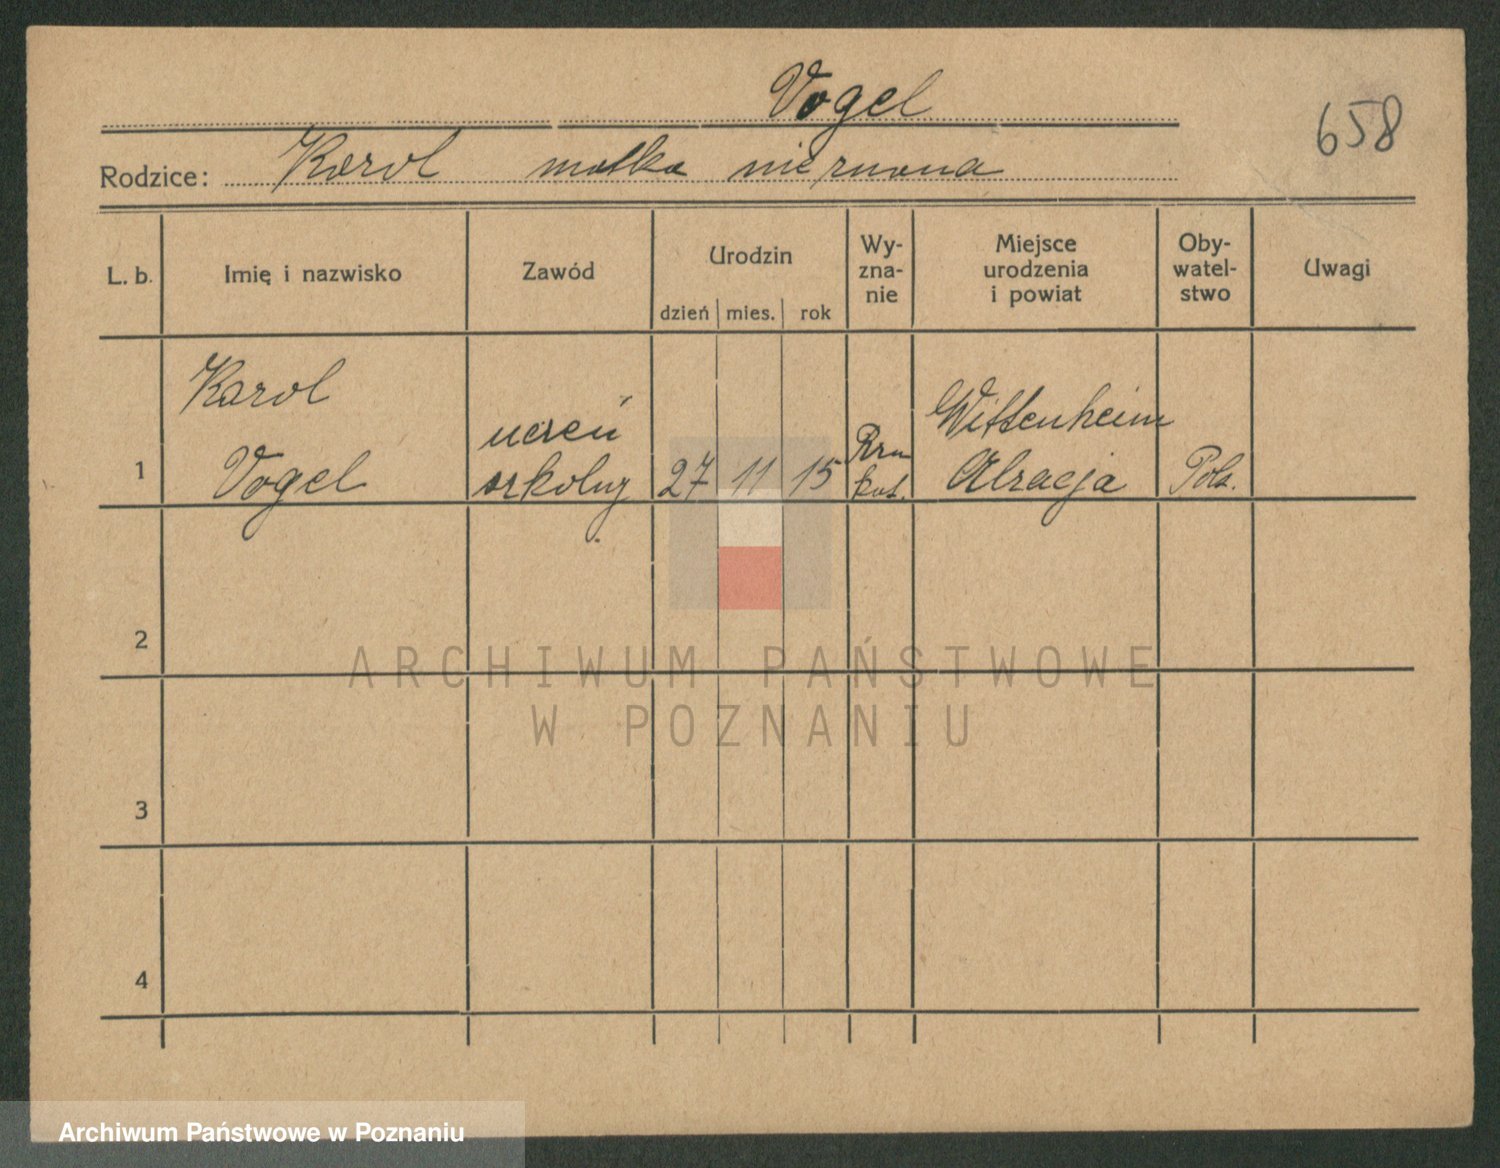 Vogel
658
Rodzice: Karol matka nieznana
L. b.
Imię i nazwisko
Zawód
Urodzin
dzień mies. rok
Wy-
zna-
nie
Miejsce
urodzenia
i powiat
Oby-
watel-
stwo
Uwagi
1
Karol
Vogel
uczeń
szkolny
27 11 15
Rzm
kat.
Wittenheim
Alzacja
Pols.
2
3
4
ARCHIWUM PAŃSTWOWE
W POZNANIU
Archiwum Państwowe w Poznaniu